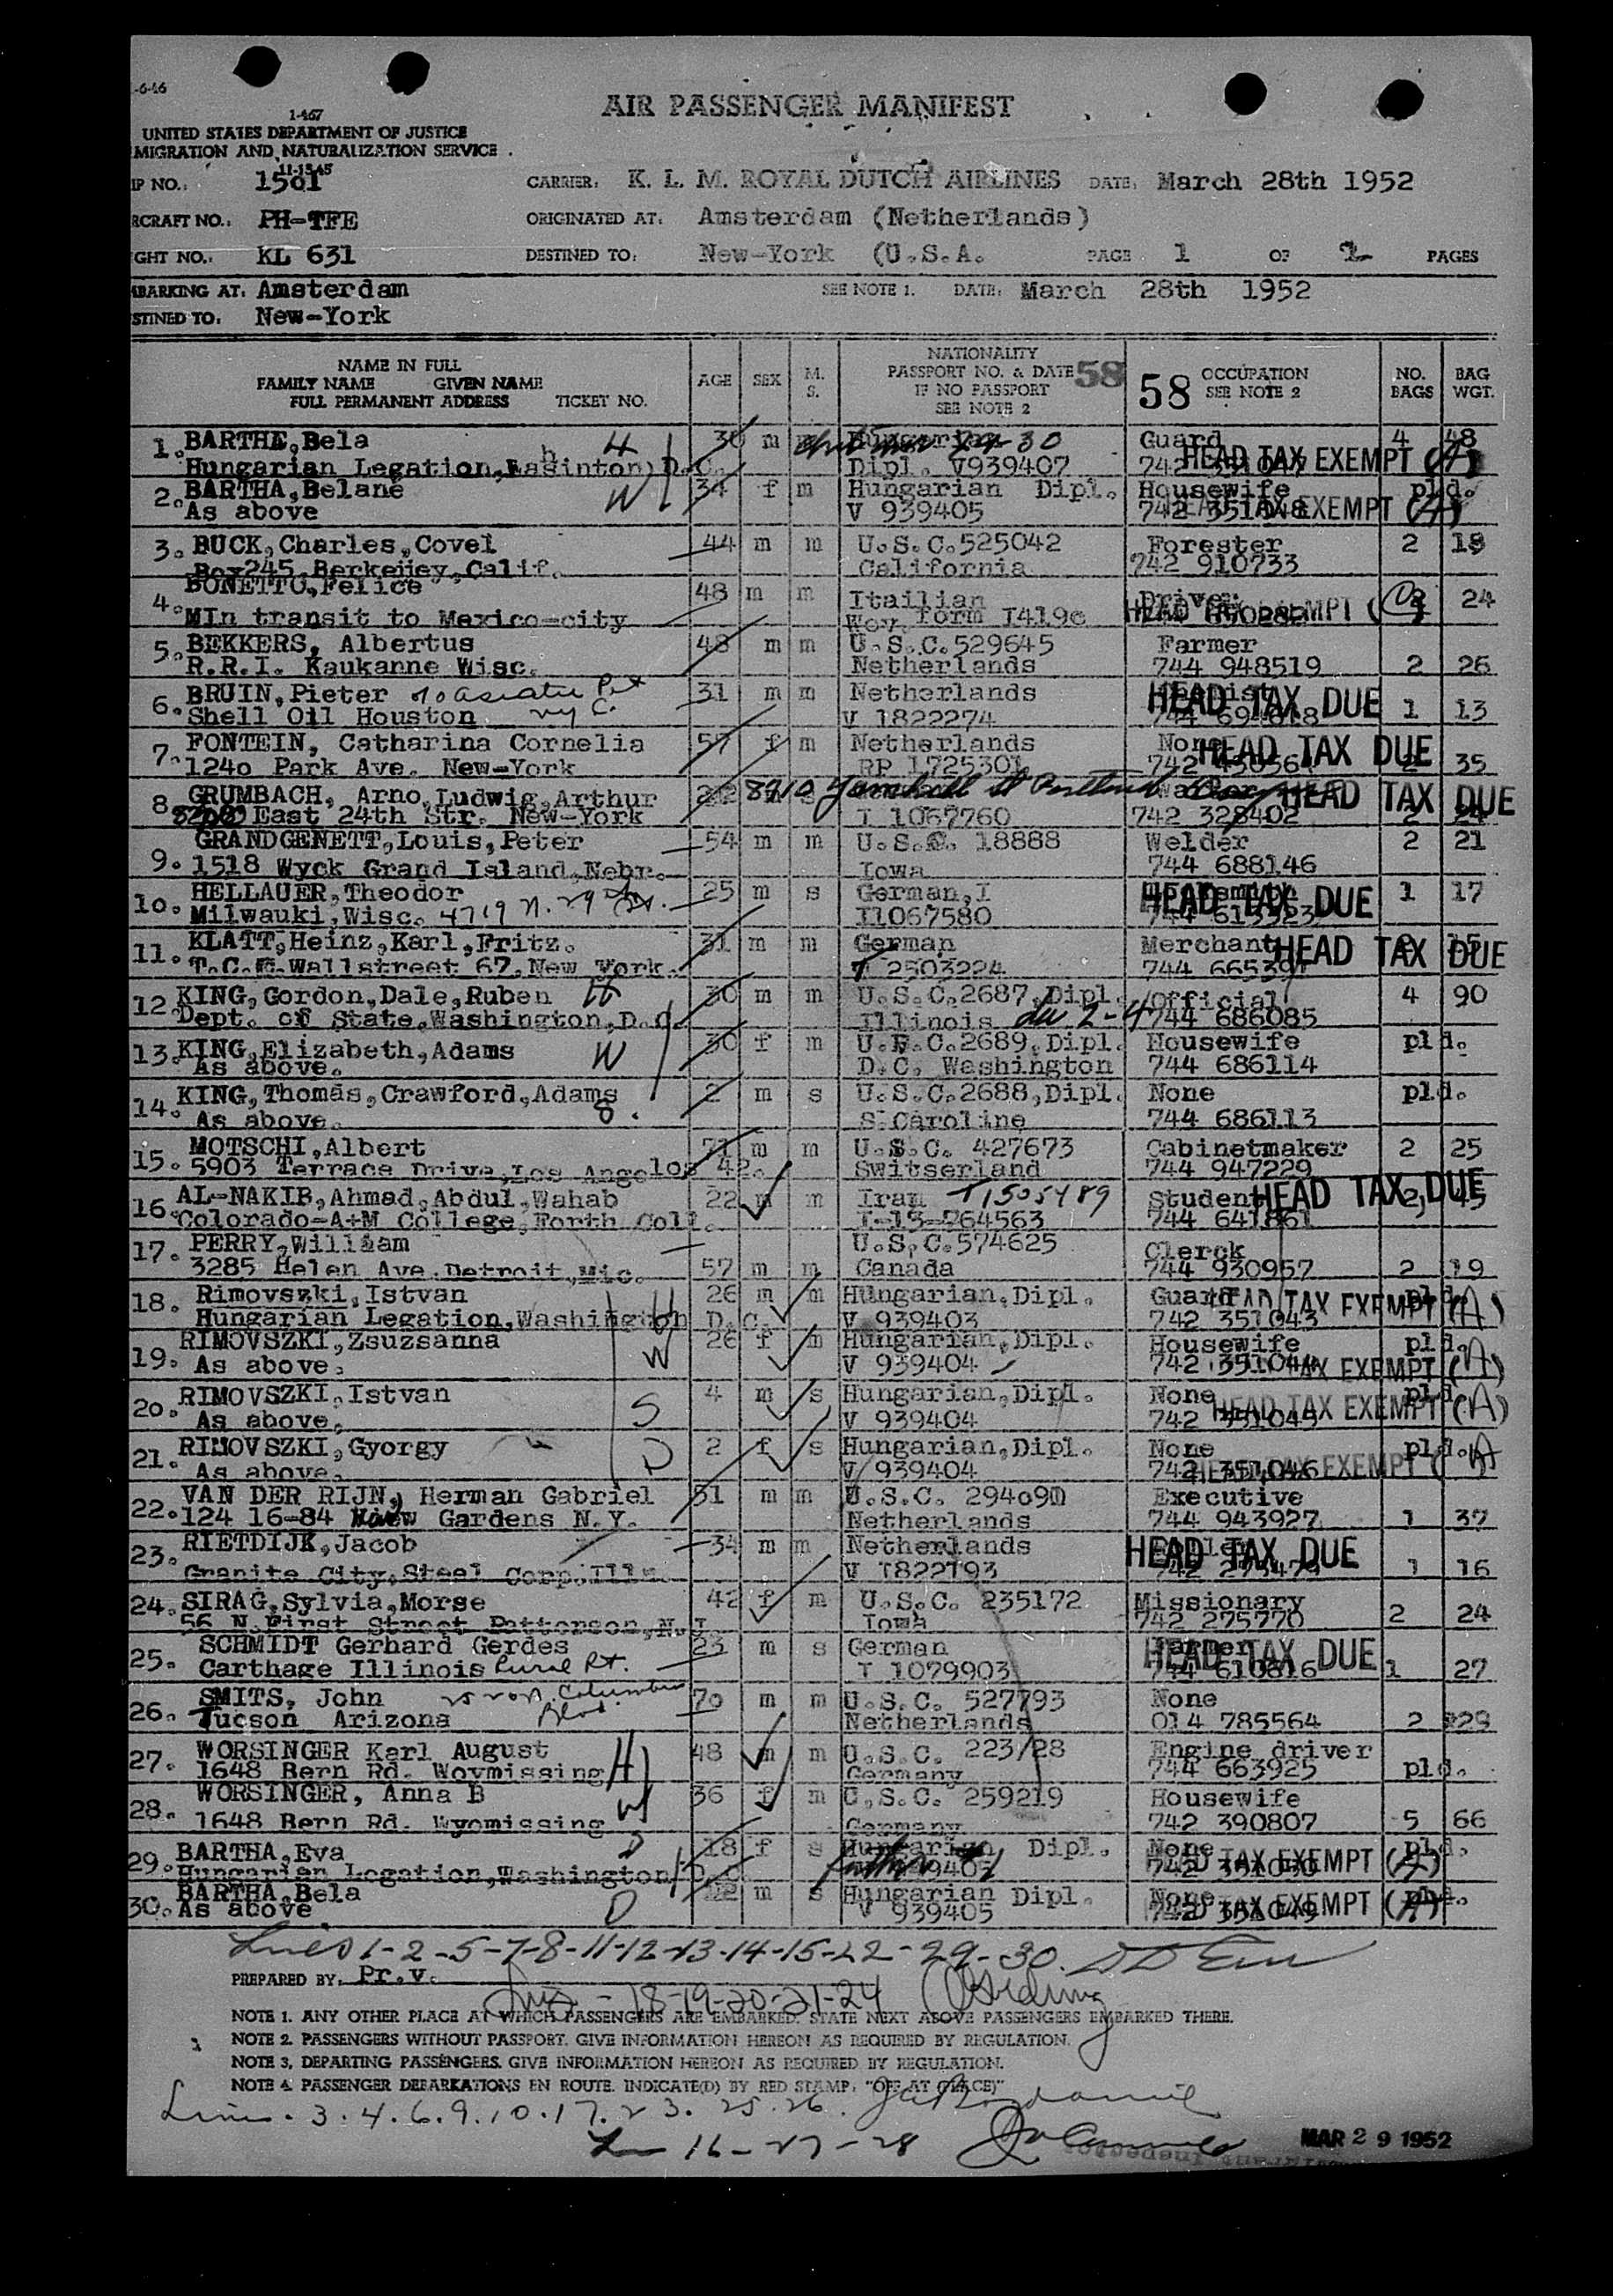 -6-46
1-467
UNITED STATES DEPARTMENT OF JUSTICE
MIGRATION AND NATURALIZATION SERVICE
11-15-45
AIR PASSENGER MANIFEST
IP NO.: 1501 CARRIER: K. L. M. ROYAL DUTCH AIRLINES DATE: March 28th 1952
RCRAFT NO.: PH-TFE ORIGINATED AT: Amsterdam (Netherlands)
GHT NO.: KL 631 DESTINED TO: New-York (U.S.A. PAGE 1 OF 2 PAGES
MBARKING AT: Amsterdam SEE NOTE 1. DATE: March 28th 1952
STINED TO: New-York
NAME IN FULL
FAMILY NAME GIVEN NAME
FULL PERMANENT ADDRESS TICKET NO.
AGE SEX M. S.
NATIONALITY
PASSPORT NO. & DATE 58
IF NO PASSPORT
SEE NOTE 2
58 OCCUPATION
SEE NOTE 2
NO. BAGS
BAG WGT.
1. BARTHE, Bela H 30 m Guard 4 48
Hungarian Legation, Wasinton, D.C. Dipl. V939407 HEAD TAX EXEMPT (A)
2. BARTHA, Belane W 34 f m Hungarian Dipl. Housewife pld.
As above V 939405 742 351048 EXEMPT (A)
3. BUCK, Charles, Covel 44 m m U.S.C. 525042 Forester 2 18
Box 245, Berkeley, Calif. California 742 910733
4. BONETTO, Felice 48 m m Itailian Driver 24
MIn transit to Mexico-city form I419c HEAD EXEMPT
5. BEKKERS, Albertus 48 m m U.S.C. 529645 Farmer
R.R.I. Kaukanne Wisc. Netherlands 744 948519 2 26
6. BRUIN, Pieter c/o asiatic Pet 31 m m Netherlands HEAD TAX DUE
Shell Oil Houston N y C. V 1822274 1 13
7. FONTEIN, Catharina Cornelia 57 f m Netherlands None HEAD TAX DUE
124o Park Ave. New-York RP 1725301 35
8. GRUMBACH, Arno, Ludwig, Arthur 8910 Yamhill St Portland HEAD TAX DUE
East 24th Str. New-York T 1067760 742 328402
9. GRANDGENETT, Louis, Peter 54 m m U.S.C. 18888 Welder 2 21
1518 Wyck Grand Island, Nebr. Iowa 744 688146
10. HELLAUER, Theodor 25 m s German, I HEAD TAX DUE 1 17
Milwauki, Wisc. 4719 N. 29 St. I1067580
11. KLATT, Heinz, Karl, Fritz. 31 m m German Merchant HEAD TAX DUE
T.C.E. Wallstreet 67, New York. T 2503224
12. KING, Gordon, Dale, Ruben H 30 m m U.S.C. 2687, Dipl. Official 4 90
Dept. of State, Washington, D.C. Illinois 744 686085
13. KING, Elizabeth, Adams W 30 f m U.S.C. 2689, Dipl. Housewife pld.
As above. D.C. Washington 744 686114
14. KING, Thomas, Crawford, Adams 2 m s U.S.C. 2688, Dipl. None pld.
As above. S. Caroline 744 686113
15. MOTSCHI, Albert 71 m m U.S.C. 427673 Cabinetmaker 2 25
5903 Terrace Drive, Los Angelos 42. Switserland 744 947229
16. AL-NAKIB, Ahmad, Abdul, Wahab 22 m m Iran T1505489 Student HEAD TAX DUE
Colorado-A+M College, Forth Coll. I-13-264563 744 641861
17. PERRY, William U.S.C. 574625 Clerck
3285 Helen Ave. Detroit, Mic. 57 m m Canada 744 930957 2 19
18. Rimovszki, Istvan H 26 m m Hungarian, Dipl. Guard pld.
Hungarian Legation, Washington D.C. V 939403 742 351043 TAX EXEMPT (A)
19. RIMOVSZKI, Zsuzsanna W 26 f m Hungarian, Dipl. Housewife pld.
As above. V 939404 742 351044 TAX EXEMPT (A)
20. RIMOVSZKI, Istvan S 4 m s Hungarian, Dipl. None pld.
As above. V 939404 742 351045 HEAD TAX EXEMPT (A)
21. RIMOVSZKI, Gyorgy D 2 f s Hungarian, Dipl. None pld. A
As above. V 939404 742 351046 EXEMPT
22. VAN DER RIJN, Herman Gabriel 51 m m U.S.C. 294o90 Executive
124 16-84 Kew Gardens N.Y. Netherlands 744 943927 1 37
23. RIETDIJK, Jacob 34 m m Netherlands HEAD TAX DUE
Granite City, Steel Corp. Ills. V 1822193 742 275479 1 16
24. SIRAG, Sylvia, Morse 42 f m U.S.C. 235172 Missionary
56 N. First Street Patterson, N.J. Iowa 742 275770 2 24
25. SCHMIDT Gerhard Gerdes 23 m s German Farmer HEAD TAX DUE
Carthage Illinois Rural Rt. T 1079903 744 610816 1 27
26. SMITS, John Columbus 70 m m U.S.C. 527793 None
Tucson Arizona Blvd. Netherlands 014 785564 2 29
27. WORSINGER Karl August H 48 m m U.S.C. 223728 Engine driver
1648 Bern Rd. Woymissing Germany 744 663925 pld.
28. WORSINGER, Anna B W 36 f m C.S.C. 259219 Housewife
1648 Bern Rd. Wyomissing Germany 742 390807 5 66
29. BARTHA, Eva D 18 f s Hungarian Dipl. None pld.
Hungarian Legation, Washington D.C. TAX EXEMPT (A)
30. BARTHA, Bela 12 m s Hungarian Dipl. None pld.
As above D V 939405 TAX EXEMPT (A)
Lines 1-2-5-7-8-11-12-13-14-15-22-29-30.
PREPARED BY: Pr.v.
Lines - 18-19-20-21-24
NOTE 1. ANY OTHER PLACE AT WHICH PASSENGERS ARE EMBARKED. STATE NEXT ABOVE PASSENGERS EMBARKED THERE.
NOTE 2. PASSENGERS WITHOUT PASSPORT. GIVE INFORMATION HEREON AS REQUIRED BY REGULATION.
NOTE 3. DEPARTING PASSENGERS. GIVE INFORMATION HEREON AS REQUIRED BY REGULATION.
NOTE 4. PASSENGER DEBARKATIONS EN ROUTE. INDICATE(D) BY RED STAMP: "OFF AT (PLACE)"
Lines. 3. 4. 6. 9. 10. 17. 23. 25. 26.
Ln 16-27-28
MAR 29 1952